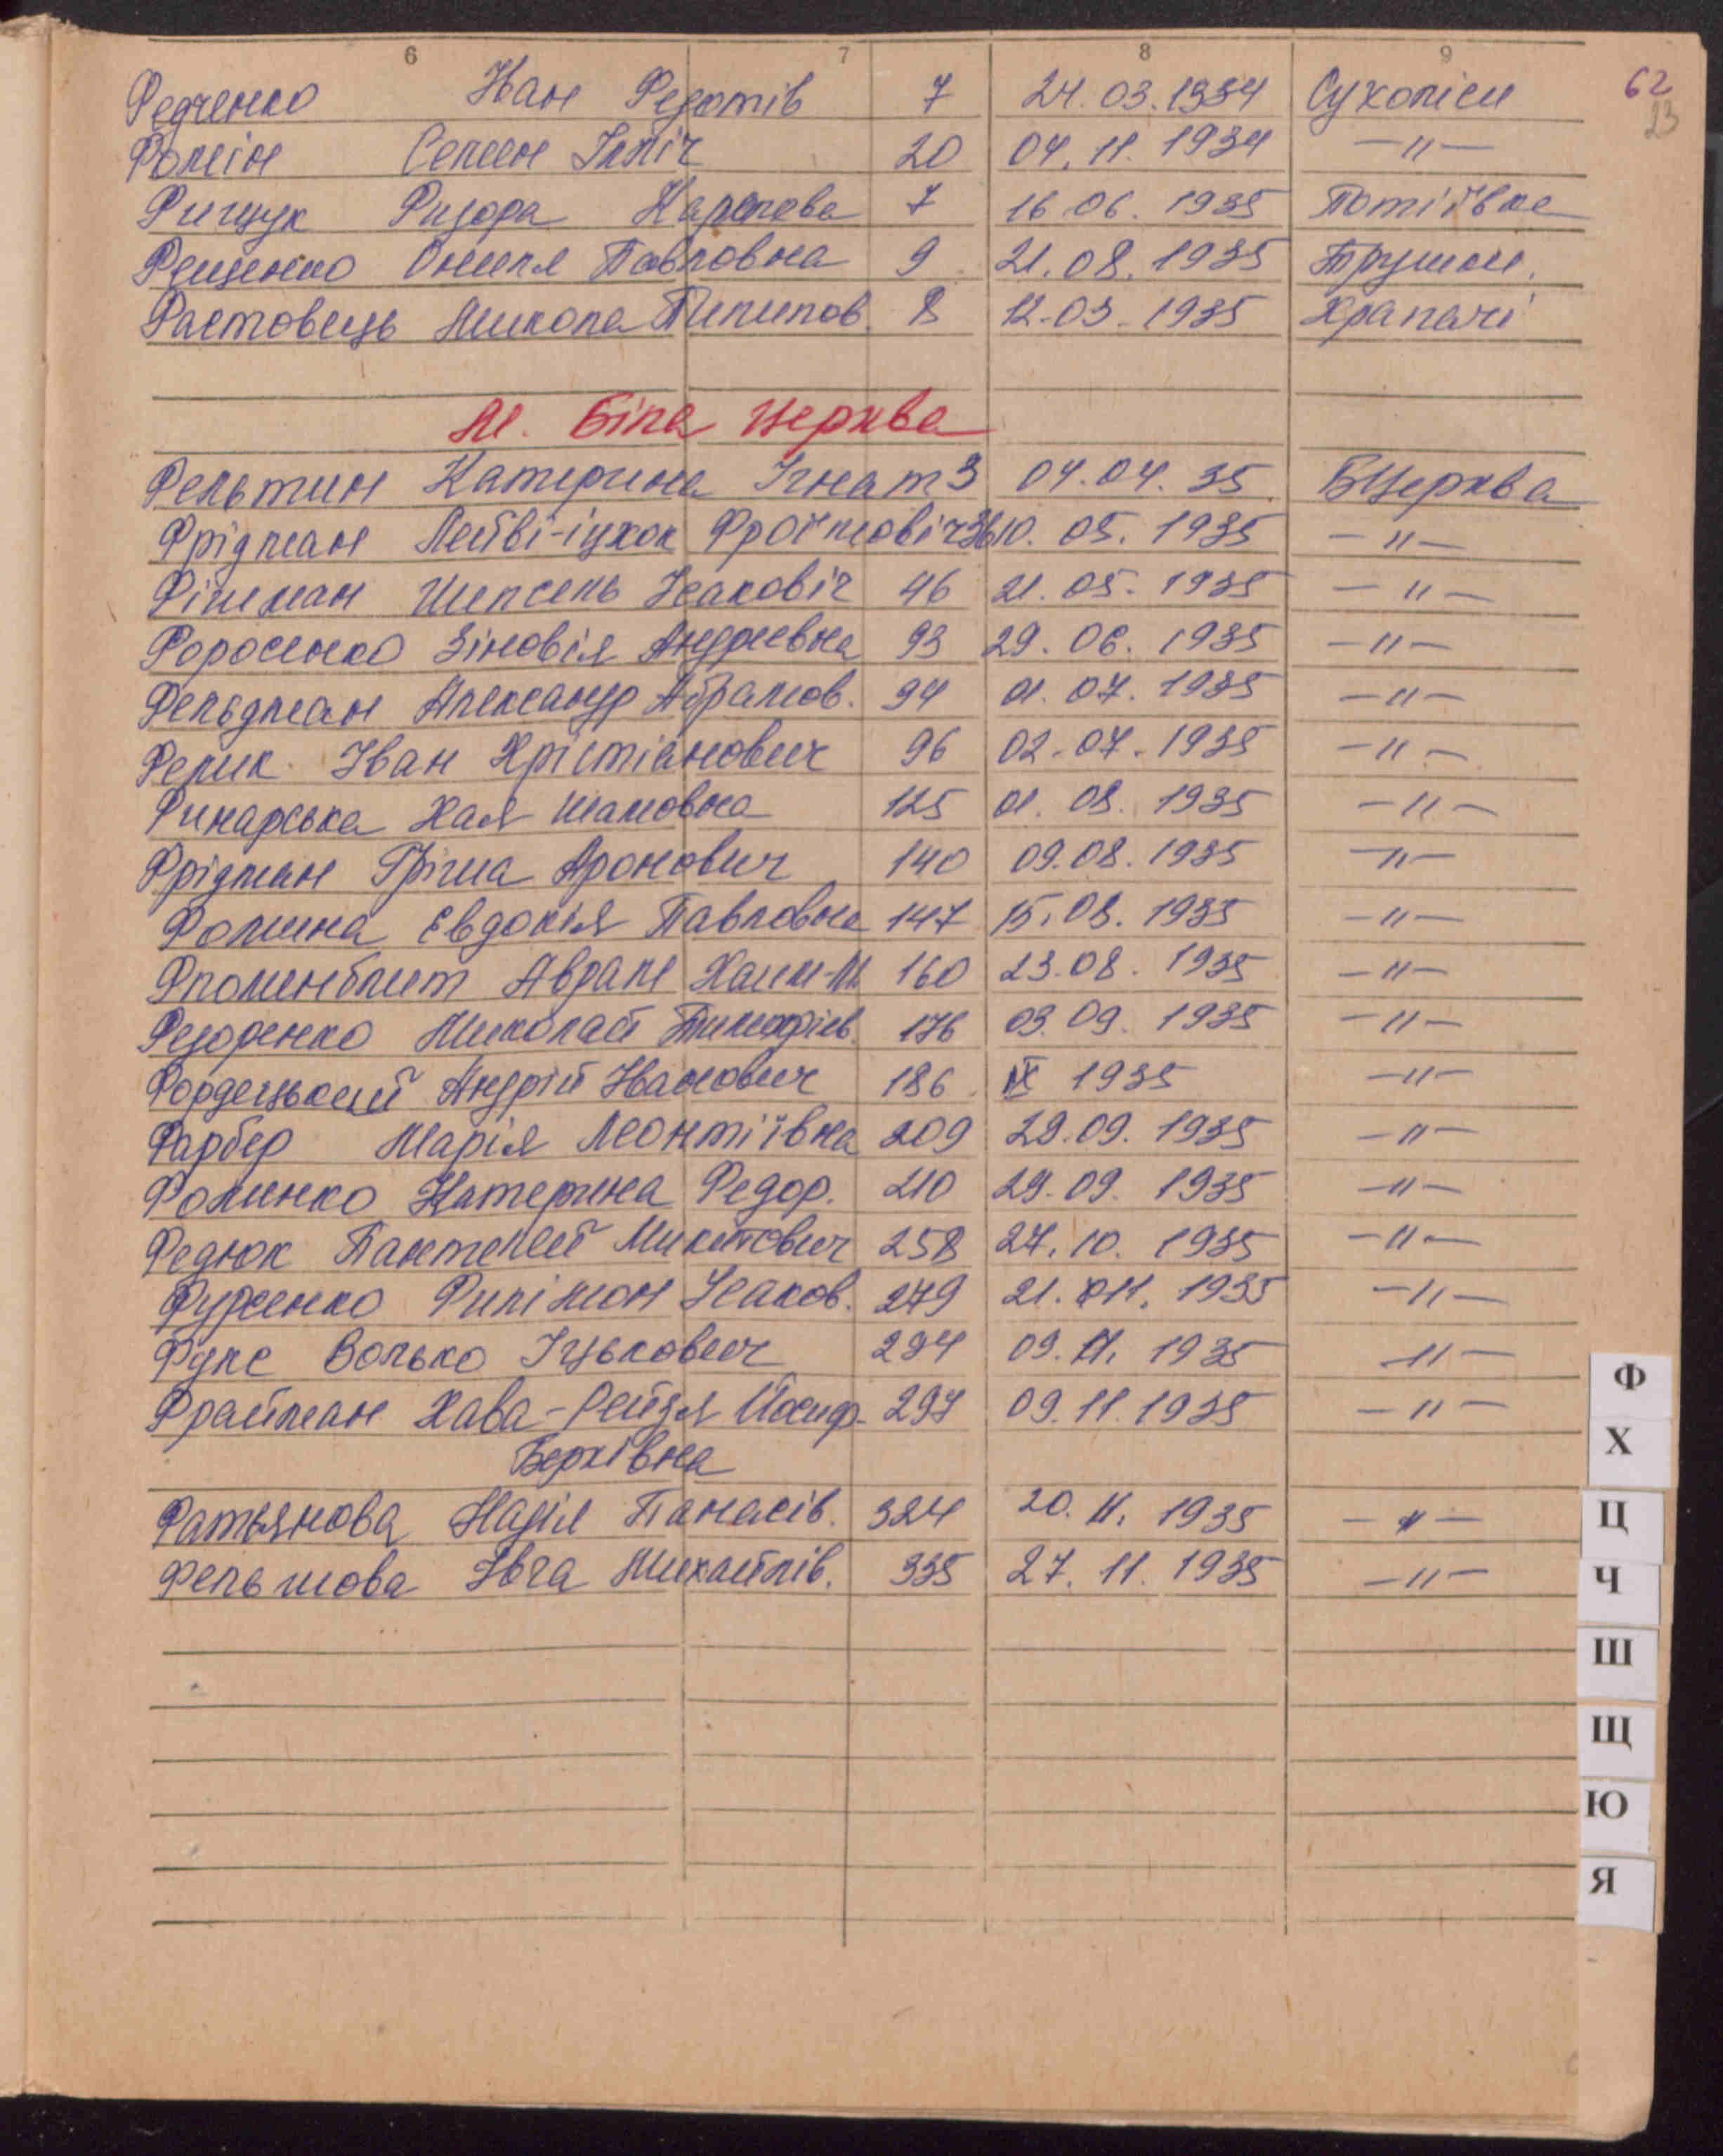 6 7 8 9
62
23
Федченко Іван Федотів 7 24.03.1934 Сухоліси
Фомін Семен Ілліч 20 04.11.1934 -"-
Фищук Фидора Карпова 7 16.06.1935 Потіївка
Фещенко Омеля Павловна 9 21.08.1935 Трушки.
Фастовець Микола Пилипов. 8 12.03.1935 Храпачі
М. Біла Церква
Фельтин Катерина Ігнат 3 04.04.35 БЦерква
Фрідман Лейві-іцхок Фроїмовіч 36 10.05.1935 -"-
Фішман Шепсель Ісаковіч 46 21.05.1935 -"-
Форосенко Зіновія Андрєєвна 93 29.06.1935 -"-
Фельдман Александр Абрамов. 94 01.07.1935 -"-
Фелик Іван Хрістіанович 96 02.07.1935 -"-
Финарська Хая Шамовна 125 01.08.1935 -"-
Фрідман Гріша Аронович 140 09.08.1935 -"-
Фомина Євдокія Павловна 147 15.08.1935 -"-
Фломенблит Аврам Хаим-М. 160 23.08.1935 -"-
Федоренко Миколай Тимофіев. 176 03.09.1935 -"-
Фордецький Андрій Іванович 186 IX 1935 -"-
Фарбер Марія Леонтіївна 209 29.09.1935 -"-
Фоминко Катерина Федор. 210 29.09.1935 -"-
Федюк Пантелей Микитович 258 27.10.1935 -"-
Фурсенко Филімон Ісаков. 279 21.011.1935 -"-
Фукс Волько Іцькович 294 09.11.1935 -"-
Фрайман Хава-Рейзя Йосиф- 297 09.11.1935 -"-
Берківна
Фатьянова Надія Панасів. 324 20.11.1935 -"-
Фельшова Івга Михайлів. 335 27.11.1935 -"-
Ф
Х
Ц
Ч
Ш
Щ
Ю
Я